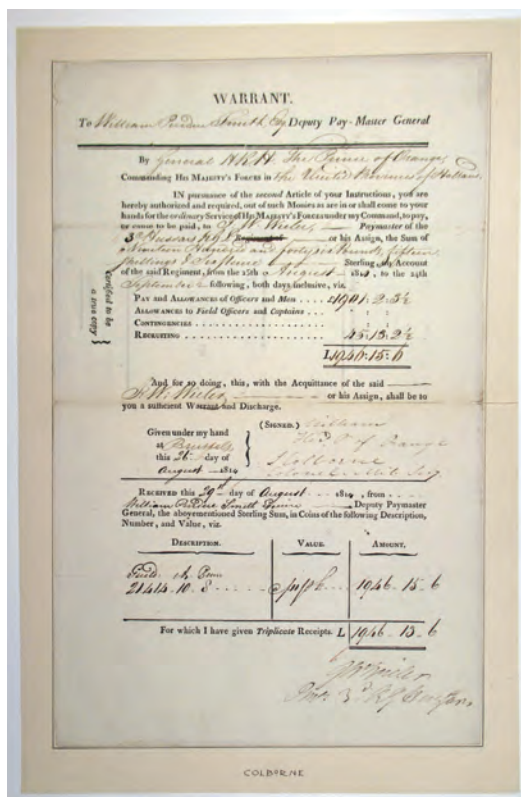 WARRANT.
To William Purdue Smith Esq Deputy Pay-Master General
By General H.R.H. The Prince of Orange,
Commanding HIS MAJESTY'S FORCES in the United Provinces of Holland,
IN pursuance of the second Article of your Instructions, you are
hereby authorized and required, out of such Monies as are in or shall come to your
hands for the ordinary Service of HIS MAJESTY'S FORCES under my Command, to pay,
or cause to be paid, to Paymaster of the
3d Hussars or his Assign, the Sum of
Nineteen Hundred and forty six Pounds, fifteen
shillings & Six Pence Sterling, on Account
of the said Regiment, from the 25th August 1814, to the 24th
September following, both days inclusive, viz.
PAY and ALLOWANCES of OFFICERS and MEN .... £1901. 2. 3½
ALLOWANCES to FIELD OFFICERS and CAPTAINS ...
CONTINGENCIES ......................
RECRUITING .................... 45. 13. 2½
L 1946. 15. 6
Certified to be
a true copy
And for so doing, this, with the Acquittance of the said
or his Assign, shall be to
you a sufficient Warrant and Discharge.
(SIGNED.) William
Given under my hand of Orange
at Brussels
this 26 day of J Colborne
August 1814 Colonel & Mil. Sec.
RECEIVED this 29th day of August 1814, from
William Purdue Smith Deputy Paymaster
General, the abovementioned Sterling Sum, in Coins of the following Description,
Number, and Value, viz.
DESCRIPTION. VALUE. AMOUNT.
Guild.
21414. 10. 8 1946. 15. 6
For which I have given Triplicate Receipts. L 1946. 15. 6
3d
COLBORNE